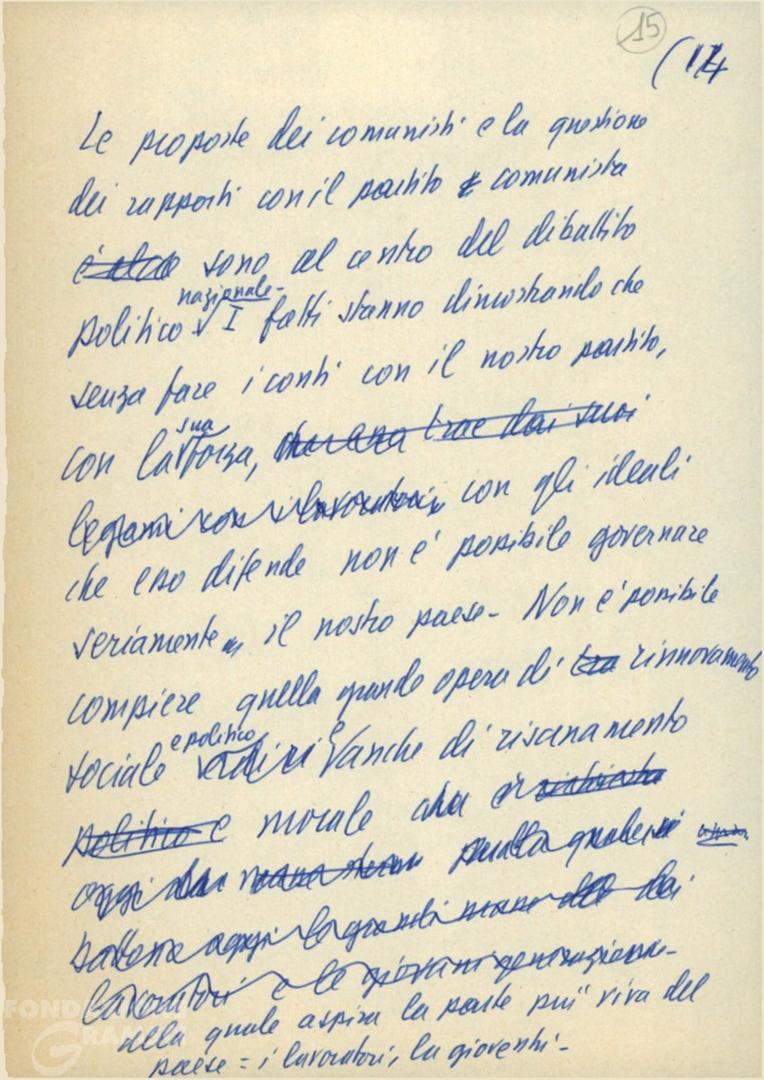 15
(14
Le proposte dei comunisti e la questione
dei rapporti con il partito comunista
sono al centro del dibattito
nazionale.
politico I fatti stanno dimostrando che
senza fare i conti con il nostro partito,
sua
con la forza, che essa trae dai suoi
legami con i lavoratori, con gli ideali
che esso difende non e' possibile governare
seriamente il nostro paese. Non e' possibile
compiere quella grande opera di rinnovamento
e politico
sociale e anche di risanamento
politico e morale
oggi
battono oggi le grandi masse dei
lavoratori e le giovani generazioni.
alla quale aspira la parte piu' viva del
paese = i lavoratori, la gioventu'.
FOND
GRAMSCI